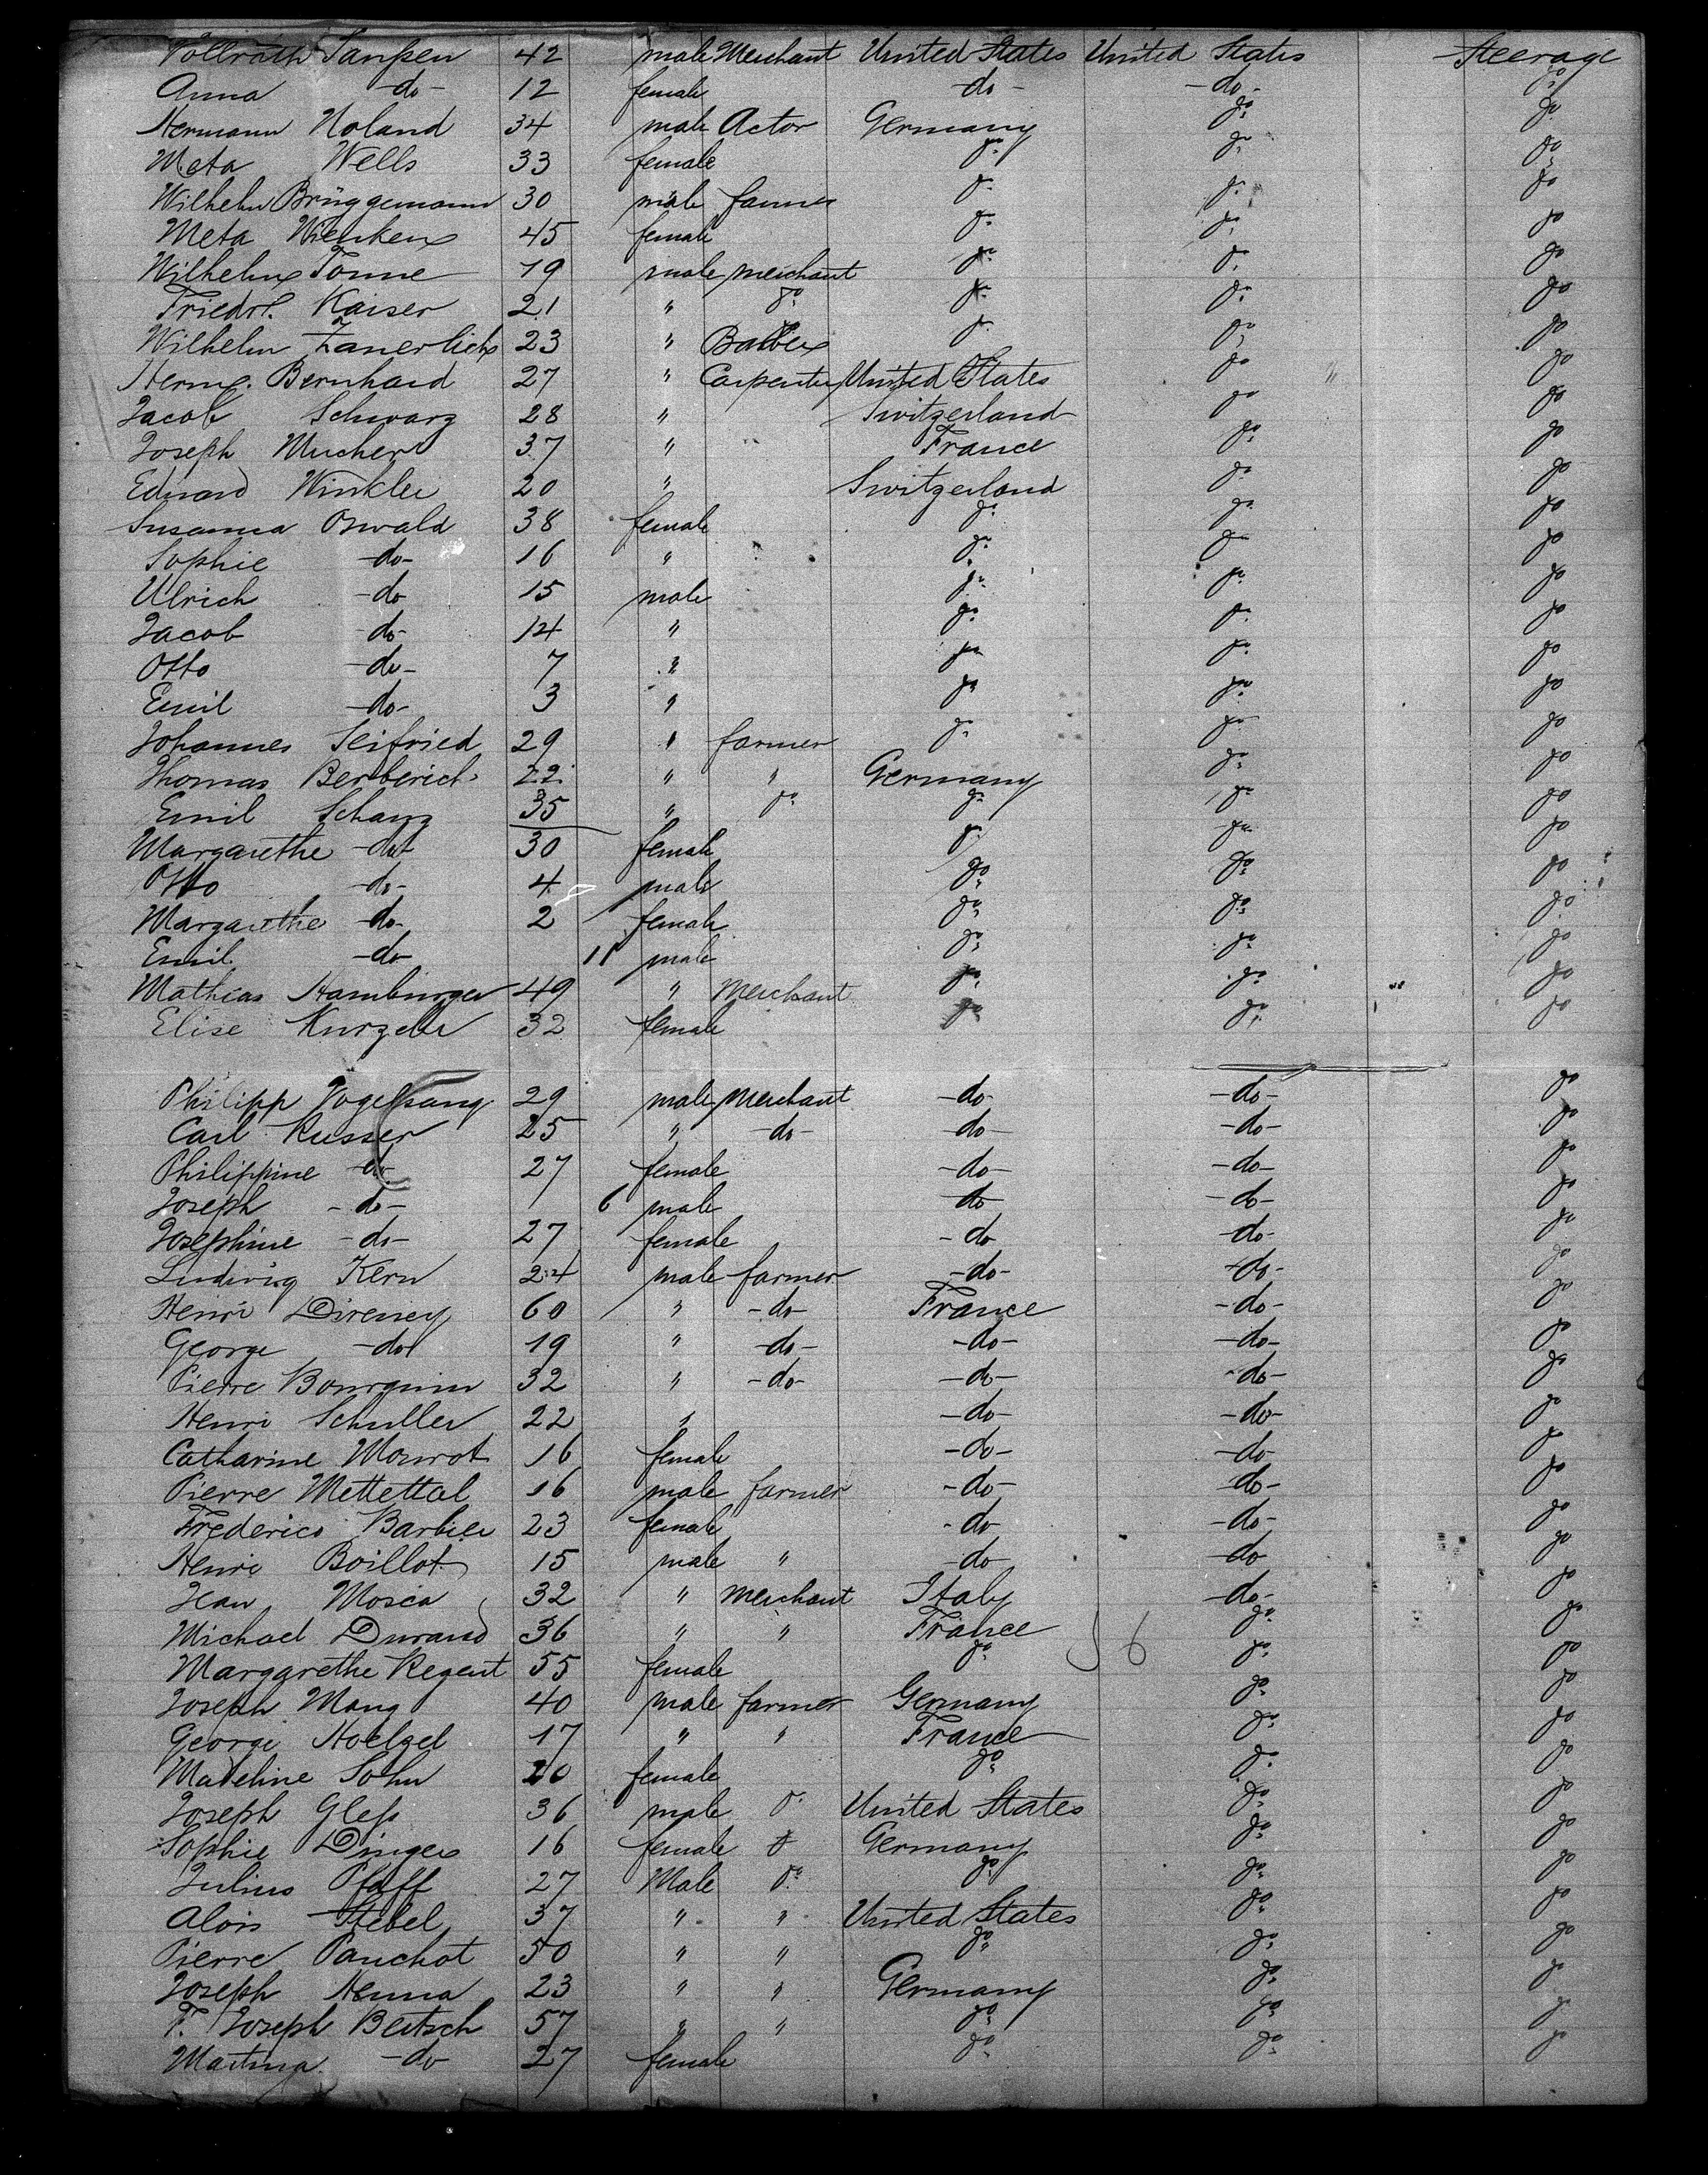 Vollrath Janßen 42 male Merchant United States United States Steerage
Anna -do- 12 female -do- -do- do
Hermann Noland 34 male Actor Germany do do
Meta Wells 33 female do do do
Wilhelm Brüggemann 30 male farmer do do do
Meta Wienken 45 female do do do
Wilhelm Tonne 19 male merchant do do do
Friedr. Kaiser 21 " do do do do
Wilhelm 23 " Barber do do do
Herm. Bernhard 27 " Carpenter United States do do
Jacob Schwarz 28 " Switzerland do do
Joseph Mucher 37 " France do do
Eduard Winkler 20 " Switzerland do do
Susanna Oswald 38 female do do do
Sophie -do- 16 " do do do
Ulrich -do 15 male do do do
Jacob -do- 14 " do do do
Otto -do- 7 " do do do
Emil -do- 3 " do do do
Johannes Seifried 29 " farmer do do do
Thomas Berberich 22 " " Germany do do
Emil Schanz 35 " do do do do
Margarethe -do- 30 female do do do
Otto -do- 4 male do do do
Margarethe -do- 2 female do do do
Emil -do- 11 male do do do
Mathias Hamburger 49 " Merchant do do do
Elise 32 female do do do
Philipp Vogelsang 29 male Merchant -do- -do- do
Carl Russer 25 " -do- -do- -do- do
Philippine -do- 27 female -do- -do- do
Joseph -do- 6 male do -do- do
Josephine -do- 27 female -do -do- do
Ludwig Kern 24 male farmer -do- -do- do
Henri Direney 60 " -do- France -do- do
George -do- 19 " -do- -do- -do- do
Pierre Bourquin 32 " -do- -do- -do- do
Henri Schuller 22 " -do- -do- do
Catharine Monrot 16 female -do- -do- do
Pierre Mettettal 16 male farmer -do- -do- do
Frederico Barbier 23 female -do -do- do
Henri Boillot 15 male " -do do do
Jean Mosca 32 " Merchant Italy -do- do
Michael Durand 36 " " France do do
Margarethe Regent 55 female do do do
Joseph Mang 40 male farmer Germany do do
George Hoelzel 17 " " France do do
Madeline Sohn 20 female do do do
Joseph Gleß 36 male do United States do do
Sophie Dinges 16 female do Germany do do
Julius Pfaff 27 Male do do do do
Alois Stebel 37 " " United States do do
Pierre Pauchot 50 " " do do do
Joseph Henna 23 " " Germany do do
F. Joseph Beitsch 57 " " do do do
Martina -do 27 female do do do